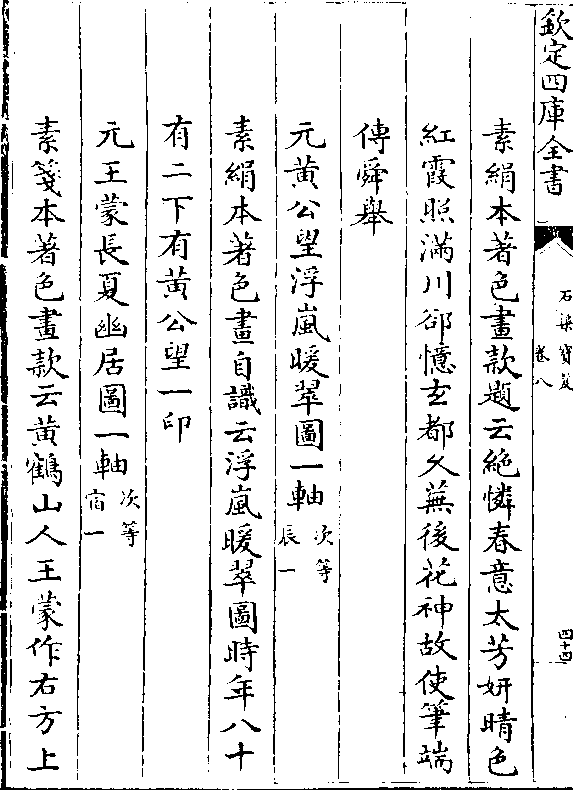 欽定四庫全書
石渠寶笈
卷八
四十四
素絹本著色畫款題云絶憐春意太芳妍晴色
紅霞照滿川郤憶玄都久蕪後花神故使筆端
傳舜舉
元黃公望浮嵐暖翠圖一軸 次等 辰一
素絹本著色畫自識云浮嵐暖翠圖時年八十
有二下有黃公望一印
元王蒙長夏幽居圖一軸 次等 宿一
素箋本著色畫款云黃鶴山人王蒙作右方上